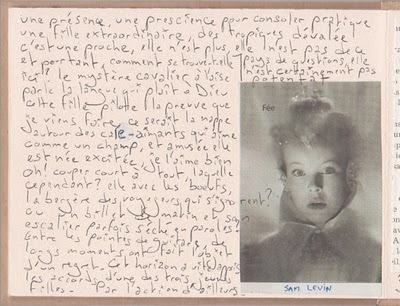 une présence, une prescience pour consoler pratique
une fille extraordinaire, des tropiques dévalée
c'est une proche, elle n'est plus elle n'est pas de ce
et pourtant, comment se trouve-t-elle pays de questions, elle
ici? le mystère cavalier à l'aise n'est certainement pas
parle la langue qui plaît à Dieu potentat
cette fille pilote la preuve que
je viens faire ce serait la nappe
autour des aimants qui s'aime
comme un champ, et amusée elle
est née excitée, je l'aime bien
oh! couper court à tout, laquelle
cependant? elle avec les boeufs,
la bergère des voyageurs qui s'ignorent?
ou un billet de matin et son
escalier parfois sèche en paroles?
Entre les pointes de guitare de
longs moments ont fait l'objet
d'un regret. Cet horizon a vite depuis
les accords d'une des trois jeunes
filles. Par l'action d'ailleurs.
Fée
SAM LEVIN